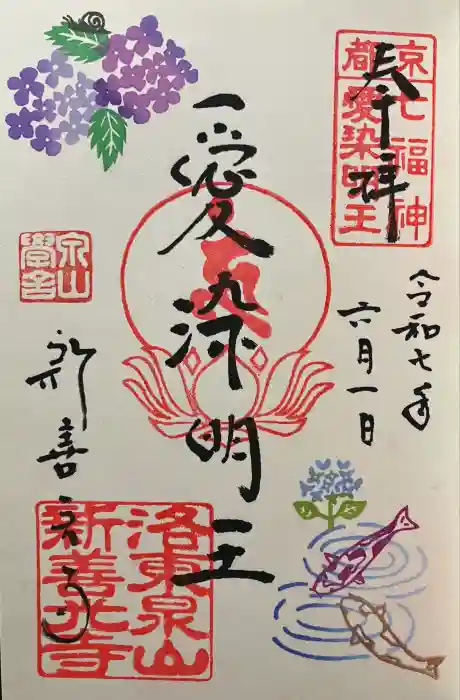 奉拝
京七福神
都愛染明王
令和七年
六月一日
愛染明王
泉山
學舎
新善光寺
洛東泉山
新善光寺